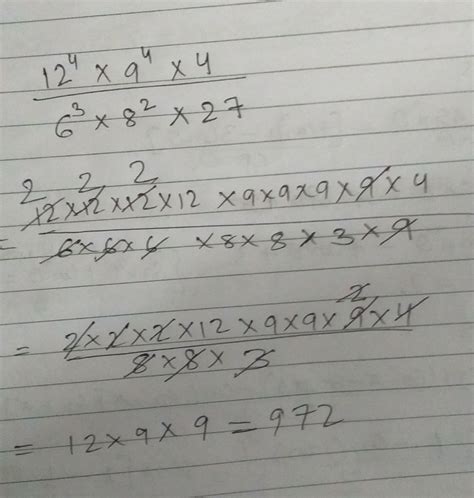 12⁴ × 9⁴ × 4
6³ × 8² × 27
2 2 2
12 × 12 × 12 × 12 × 9 × 9 × 9 × 9 × 4
= 6 × 6 × 6 × 8 × 8 × 3 × 9
2
= 2 × 2 × 2 × 12 × 9 × 9 × 9 × 4
8 × 8 × 3
= 12 × 9 × 9 = 972